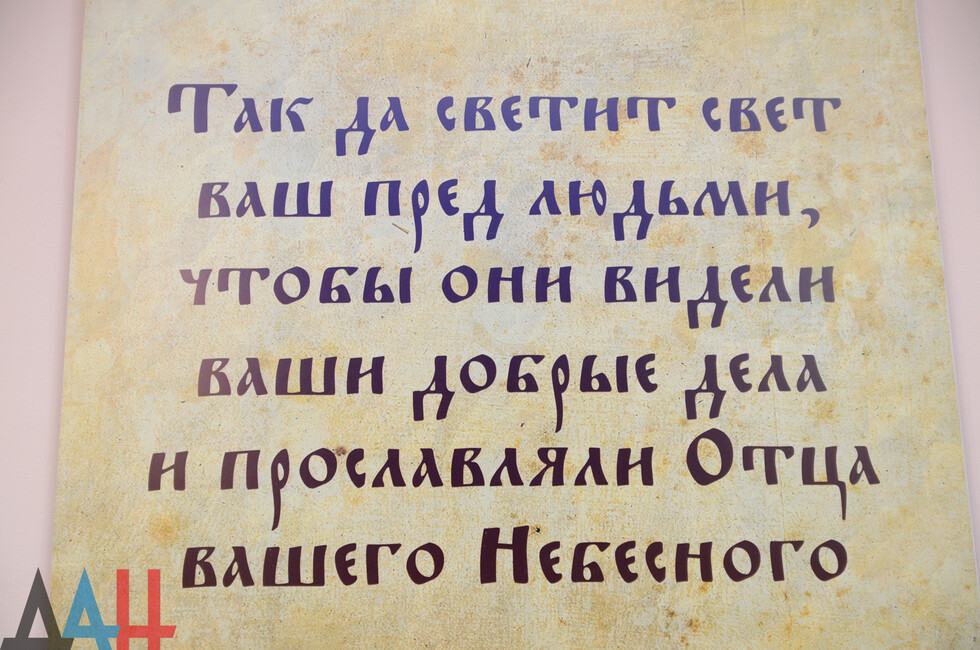 Так да светит свет
ваш пред людьми,
чтобы они видели
ваши добрые дела
и прославляли Отца
вашего Небесного
ДАН